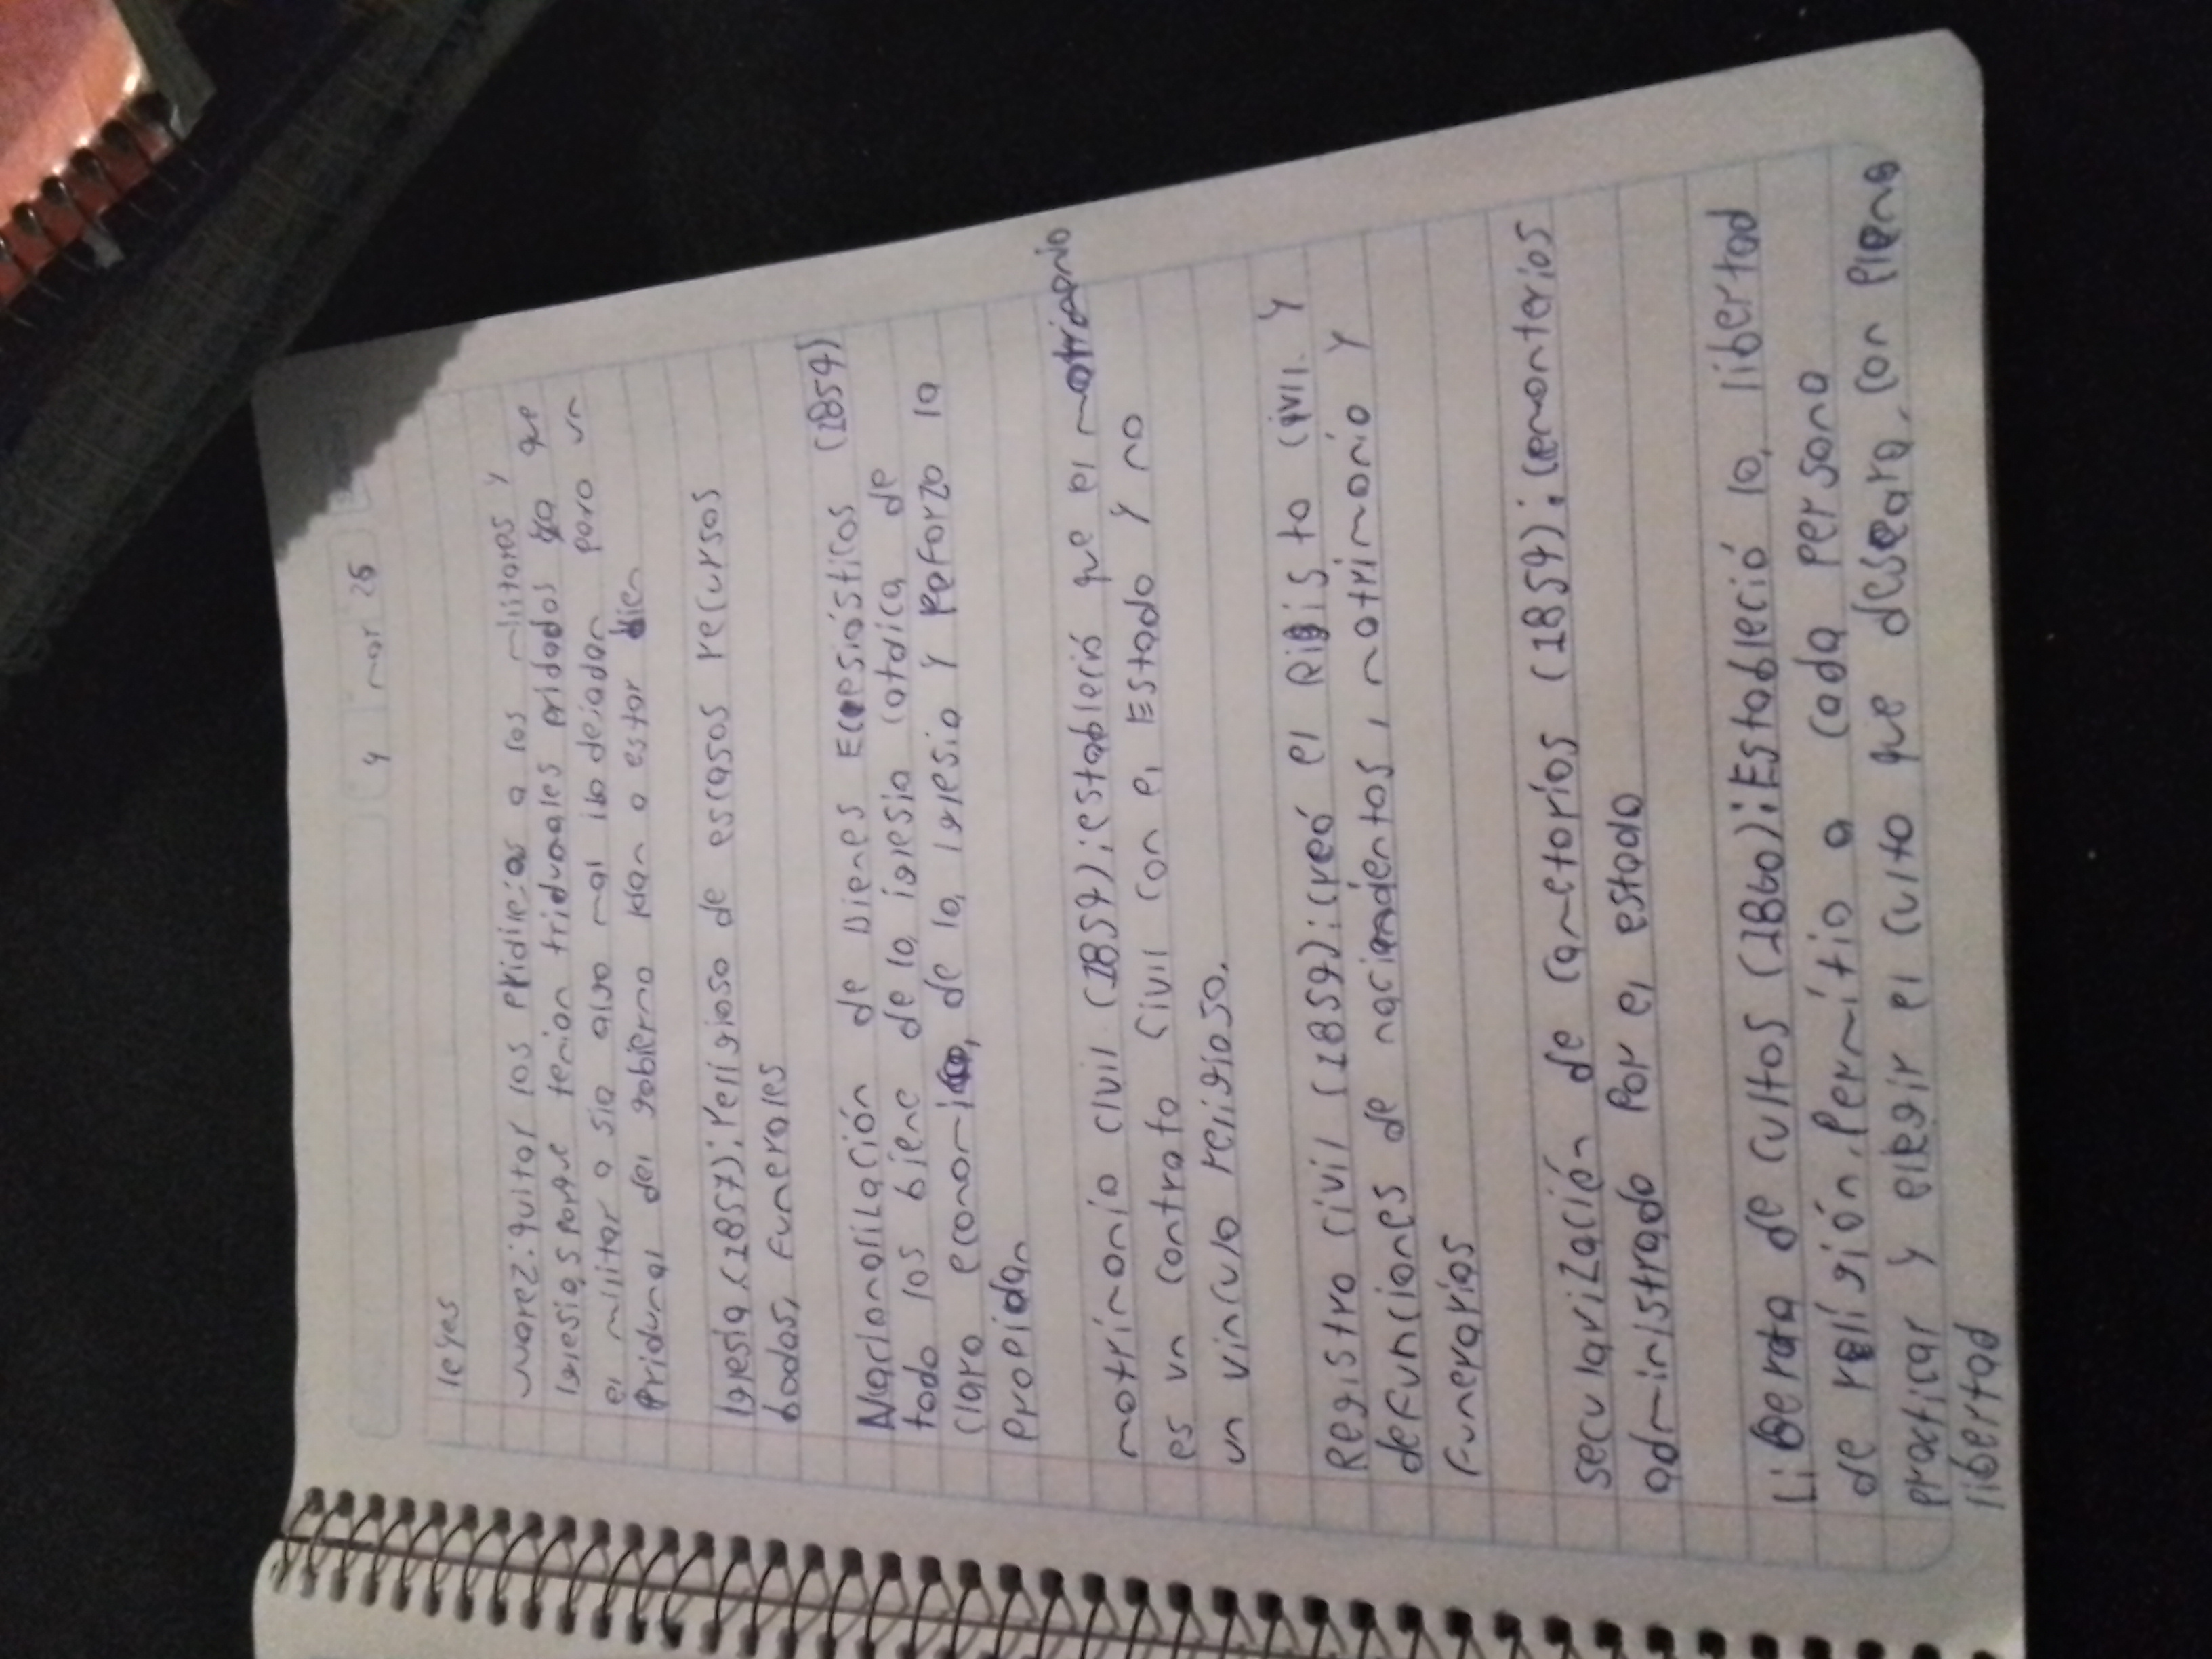 4 mar 25
leyes
Juarez: quitar los pridicias a los militares y
iglesias porque tenian triduanales pridados ya que
el militar o sia algo mal ibo dejadan para un
Pridunal del gobierno idan a estar bien
Iglesia (1857): religioso de escasos recursos
bodas, funerales
Nacionalilación de Bienes Eccesiásticos (1859)
todo los biene de la iglesia catolica de
claro economico, de la iglesia y reforzo la
propeidan
matrimonio civil (1859): estableció que el matrimonio
es un contrato civil con el Estado y no
un vinculo religioso.
Registro civil (1859): creó el Rigisto civil y
defunciones de nacimientos, matrimonio y
funerarios
secularización de cametorios (1859): cemonterios
administrado por el estado
Liberta de cultos (1860): Estableció la libertad
de religión, Permitio a cada persona
practicar y elegir el culto que deseara, con plena
libertad